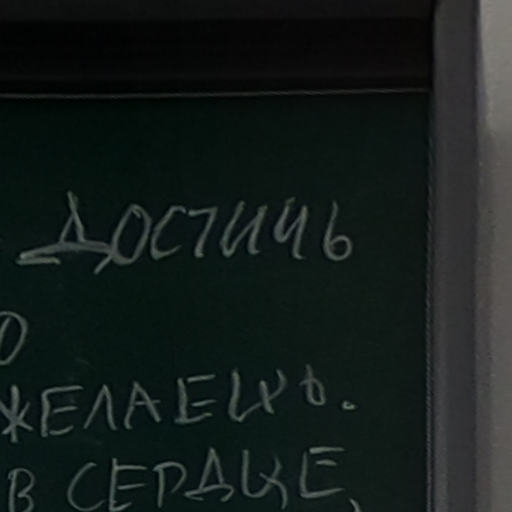 ДОСТИЧЬ
О
ЖЕЛАЕШЬ.
В СЕРДЦЕ,